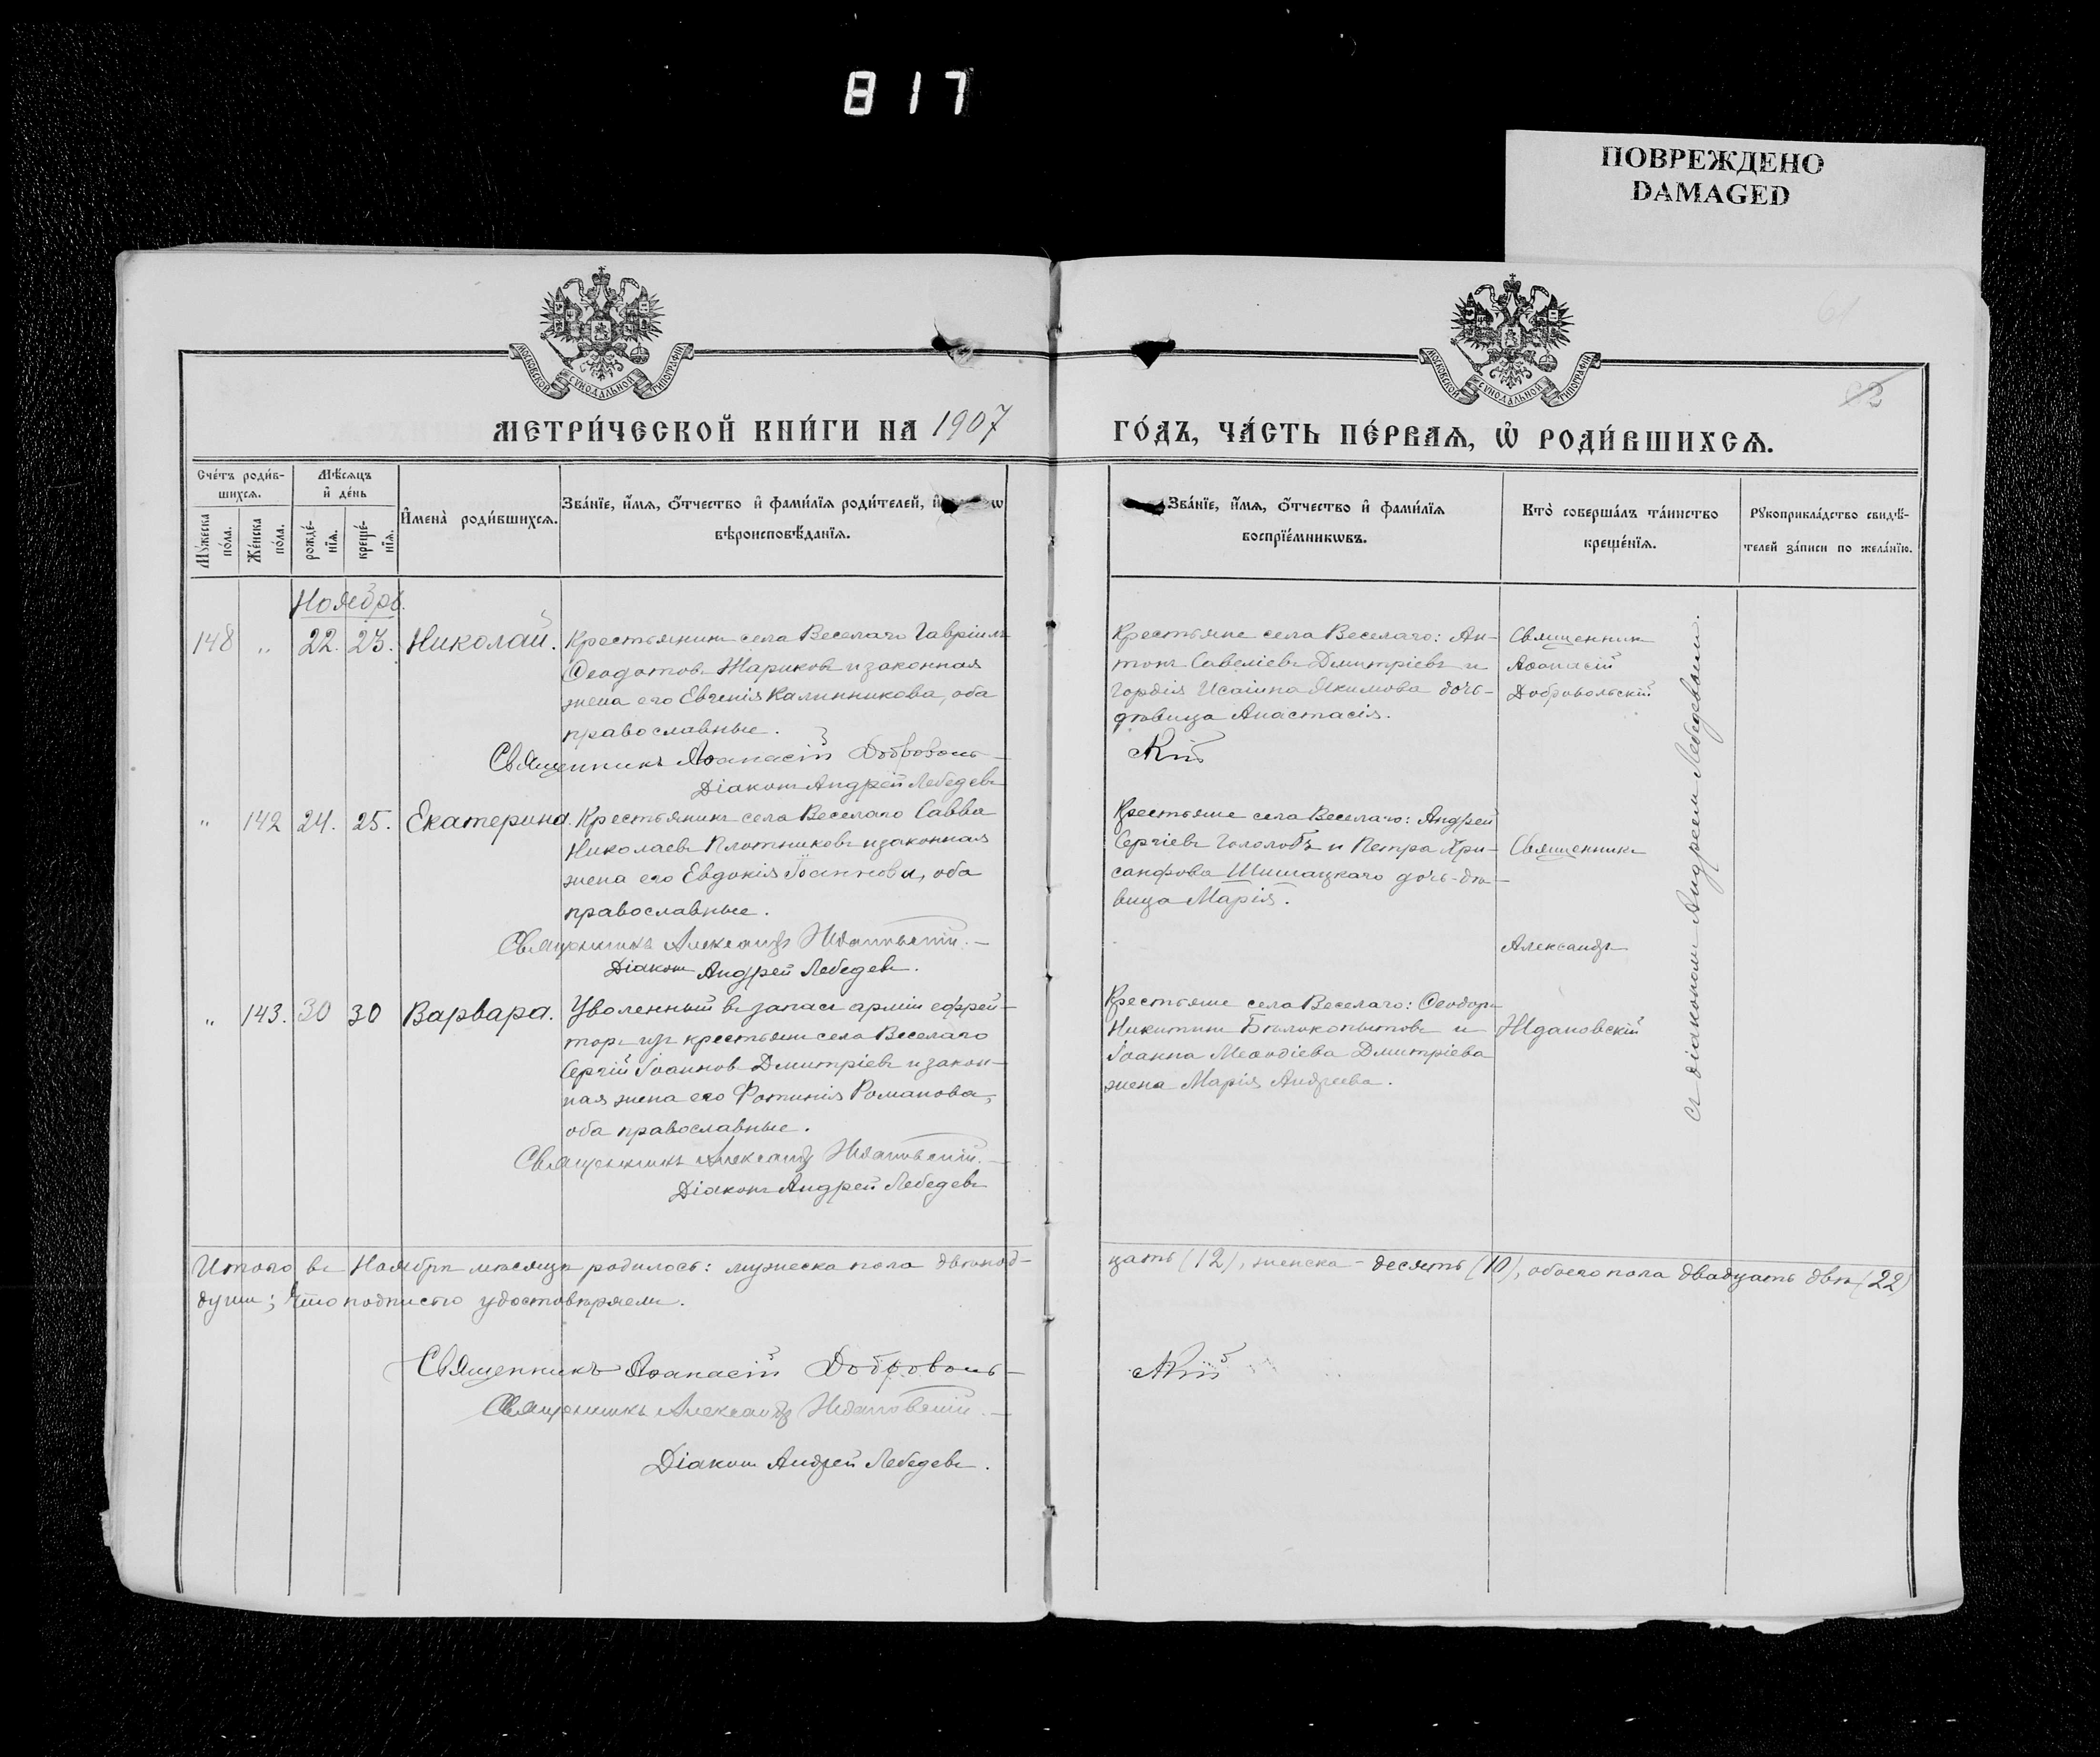 817
ПОВРЕЖДЕНО
DAMAGED
МОСКОВСКОЙ СѴНОДАЛЬНОЙ ТИПОГРАФІИ
МОСКОВСКОЙ СѴНОДАЛЬНОЙ ТИПОГРАФІИ
61
62
МЕТРИ́ЧЕСКОЙ КНИ́ГИ НА 1907
ГО́ДЪ, ЧА́СТЬ ПЕ́РВАѦ, Ѡ҆ РОДИ́ВШИХСѦ.
Сче́тъ роди́в-
шихсѧ.
Мѣ́сѧцъ
и҆ де́нь
Мꙋ́жеска
по́ла.
Же́нска
по́ла.
рожде́-
нїѧ.
креще́-
нїѧ.
И҆мена̀ роди́вшихсѧ.
Зва́нїе, и҆́мѧ, ѻ҆́тчество и҆ фами́лїѧ роди́телей, и҆
вѣроисповѣ́данїѧ.
Зва́нїе, и҆́мѧ, ѻ҆́тчество и҆ фами́лїѧ
воспрїе́мникѡвъ.
Кто̀ соверша́лъ та́инство
креще́нїѧ.
Рꙋкоприкла́дство свидѣ́-
телей за́писи по жела́нїю.
Ноябрь.
148 „ 22. 23. Николай. Крестьянинъ села Веселаго Гавріилъ
Ѳеодотовъ Жариковъ и законная
жена его Евгенія Калинникова, оба
православные.
Священникъ Аѳанасій Добровольскій
Діаконъ Андрей Лебедевъ
Крестьяне села Веселаго: Ан-
тонъ Савеліевъ Дмитріевъ и
Гордія Исаіина Якимова дочь-
дѣвица Анастасія.
Священникъ
Аѳанасій
Добровольскій
„ 142 24. 25. Екатерина. Крестьянинъ села Веселаго Савва
Николаевъ Плотниковъ и законная
жена его Евдокія Іоаннова, оба
православные.
Священникъ Александръ Ждановскій.
Діаконъ Андрей Лебедевъ.
Крестьяне села Веселаго: Андрей
Сергіевъ Гололобъ и Петра Хри-
санфова Шишацкаго дочь-дѣ-
вица Марія.
Священникъ
Александръ
Ждановскій
„ 143. 30 30 Варвара. Уволенный въ запасъ арміи ефрей-
торъ изъ крестьянъ села Веселаго
Сергій Іоанновъ Дмитріевъ и закон-
ная жена его Фотинія Романова,
оба православные.
Священникъ Александръ Ждановскій.
Діаконъ Андрей Лебедевъ
Крестьяне села Веселаго: Ѳеодоръ
Никитинъ Бѣлокопытовъ и
Іоанна Меѳодіева Дмитріева
жена Марія Андреева.
съ діакономъ Андреемъ Лебедевымъ.
Итого въ Ноябрѣ мѣсяцѣ родилось: мужеска пола двѣнад-
цать (12), женска - десять (10), обоего пола двадцать двѣ (22)
души; что подписью удостовѣряемъ.
Священникъ Аѳанасій Добровольскій
Священникъ Александръ Ждановскій.
Діаконъ Андрей Лебедевъ.